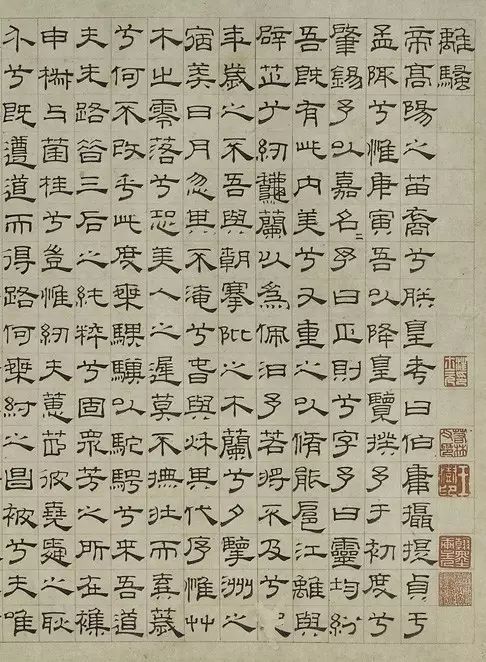 離騷
帝高陽之苗裔兮朕皇考曰伯庸攝提貞于
孟陬兮惟庚寅吾以降皇覽揆予于初度兮
肇錫予以嘉名〻予曰正則兮字予曰靈均紛
吾既有此内美兮又重之以脩能扈江離與
辟芷兮紉龝蘭以為佩汩予若將不及兮恐
年歲之不吾與朝搴阰之木蘭兮夕擥洲之
宿莽日月忽其不淹兮春與秋其代序惟艸
木之零落兮恐美人之遲莫不撫壯而棄薉
兮何不改乎此度椉騏驥以駝騁兮來吾道
夫先路昝三后之純粹兮固眾芳之所在襍
申椒与菌桂兮豈惟紉夫蕙茝彼堯舜之耿
介兮既遵道而得路何桀紂之昌被兮夫唯